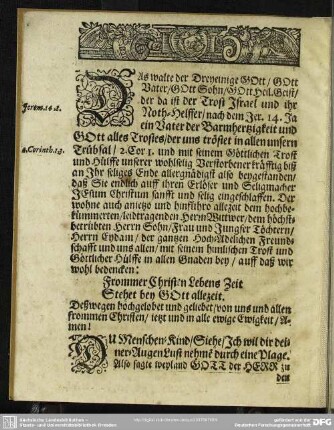 DAs walte der Dreyeinige GOtt / GOtt
Vater / GOtt Sohn / GOtt Heil. Geist /
der da ist der Trost Israel und ihr
Noth-Helffer / nach dem Jer. 14. Ja
ein Vater der Barmhertzigkeit und
GOtt alles Trostes / der uns tröstet in allen unsern
Trübsal / 2. Cor 1. und mit seinem Göttlichen Trost
und Hülffe unserer wohlselig Verstorbener kräfftig biß
an Ihr seliges Ende allergnädigst also beygestanden /
daß Sie endlich auff ihren Erlöser und Seligmacher
JEsum Christum sanfft und selig eingeschlaffen. Der
wohne auch anietzt und hinführo allezeit dem hochbe-
kümmerten / leidtragenden Herrn Wittwer / dem höchst-
betrübten Herrn Sohn / Frau und Jungfer Töchtern /
Herrn Eydam / der gantzen Hoch-Adelichen Freund-
schafft und uns allen / mit seinem himlischen Trost und
Göttlicher Hülffe in allen Gnaden bey / auff daß wir
wohl bedencken:
Frommer Christen Lebens Zeit
Stehet bey GOtt allezeit.
Deßwegen hochgelobet und geliebet / von uns und allen
frommen Christen / ietzt und in alle ewige Ewigkeit / A-
men!
DU Menschen-Kind / Siehe / Ich wil dir dei-
ner Augen Lust nehmen durch eine Plage.
Also sagte weyland GOTT der HERR zu
den
Jerem. 14. 8.
2. Corinth. 1. 3.